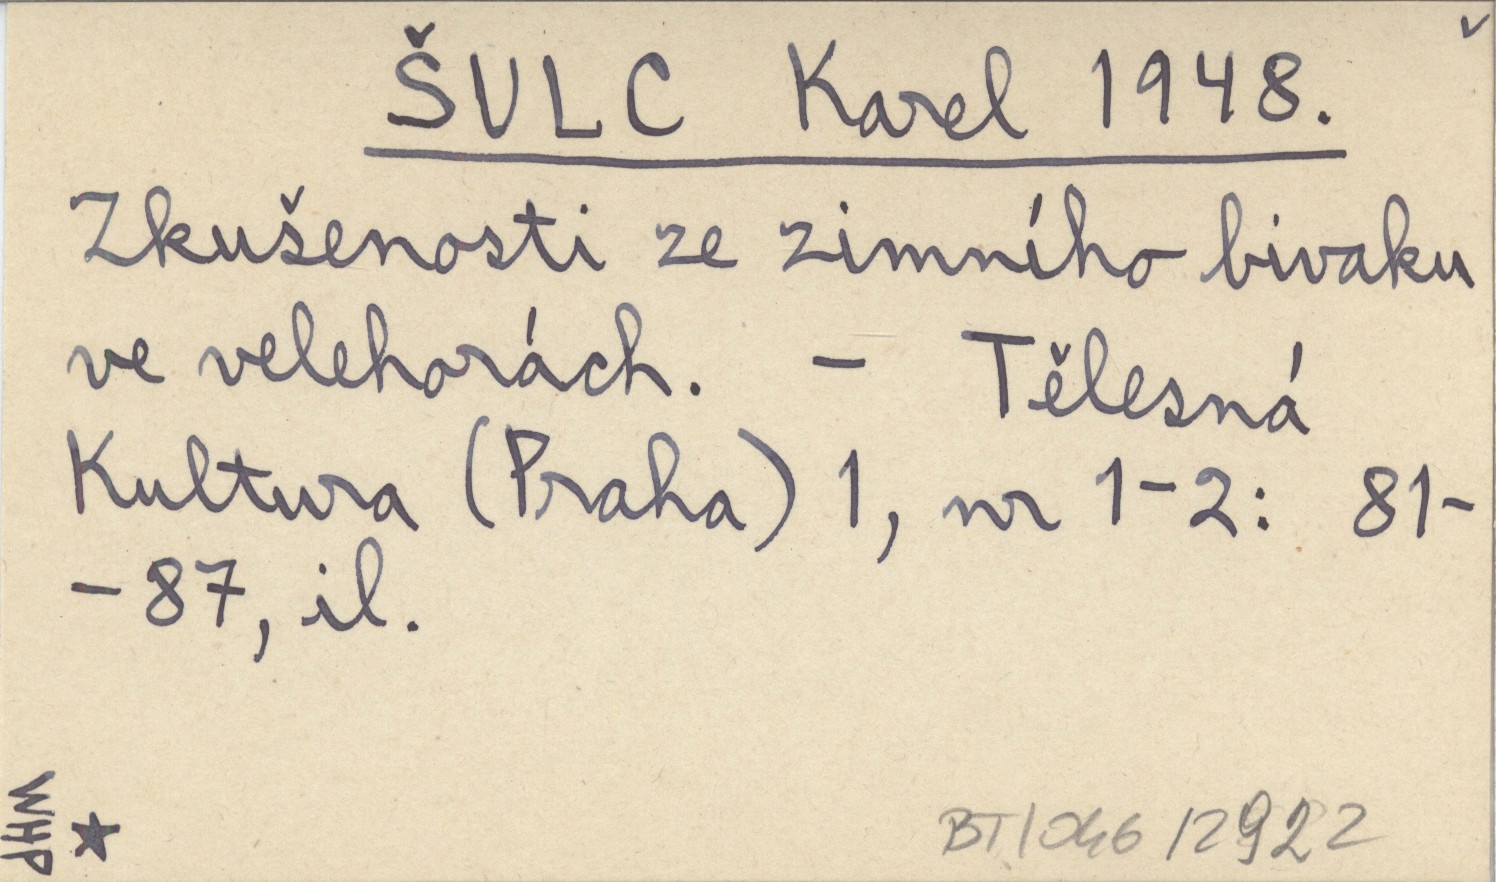 ŠULC Karel 1948.
Zkušenosti ze zimního bivaku
ve velehorách. - Tělesná
Kultura (Praha) 1, nr 1-2: 81-
-87, il.
WHP
BT/046/2922